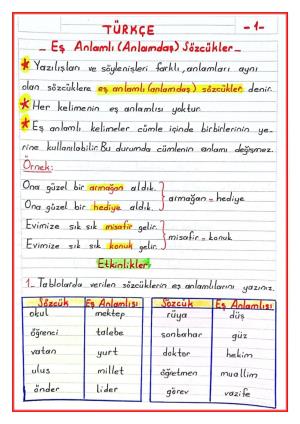 TÜRKÇE
-1-
_ Eş Anlamlı (Anlamdaş) Sözcükler _
* Yazılışları ve söylenişleri farklı, anlamları aynı
olan sözcüklere eş anlamlı (anlamdaş) sözcükler denir.
* Her kelimenin eş anlamlısı yoktur.
* Eş anlamlı kelimeler cümle içinde birbirlerinin ye-
rine kullanılabilir. Bu durumda cümlenin anlamı değişmez.
Örnek:
Ona güzel bir armağan aldık.
Ona güzel bir hediye aldık.
armağan = hediye
Evimize sık sık misafir gelir.
Evimize sık sık konuk gelir.
misafir = konuk
Etkinlikler
1_ Tablolarda verilen sözcüklerin eş anlamlılarını yazınız.
Sözcük Eş Anlamlısı
okul mektep
öğrenci talebe
vatan yurt
ulus millet
önder lider
Sözcük Eş Anlamlısı
rüya düş
sonbahar güz
doktor hekim
öğretmen muallim
görev vazife